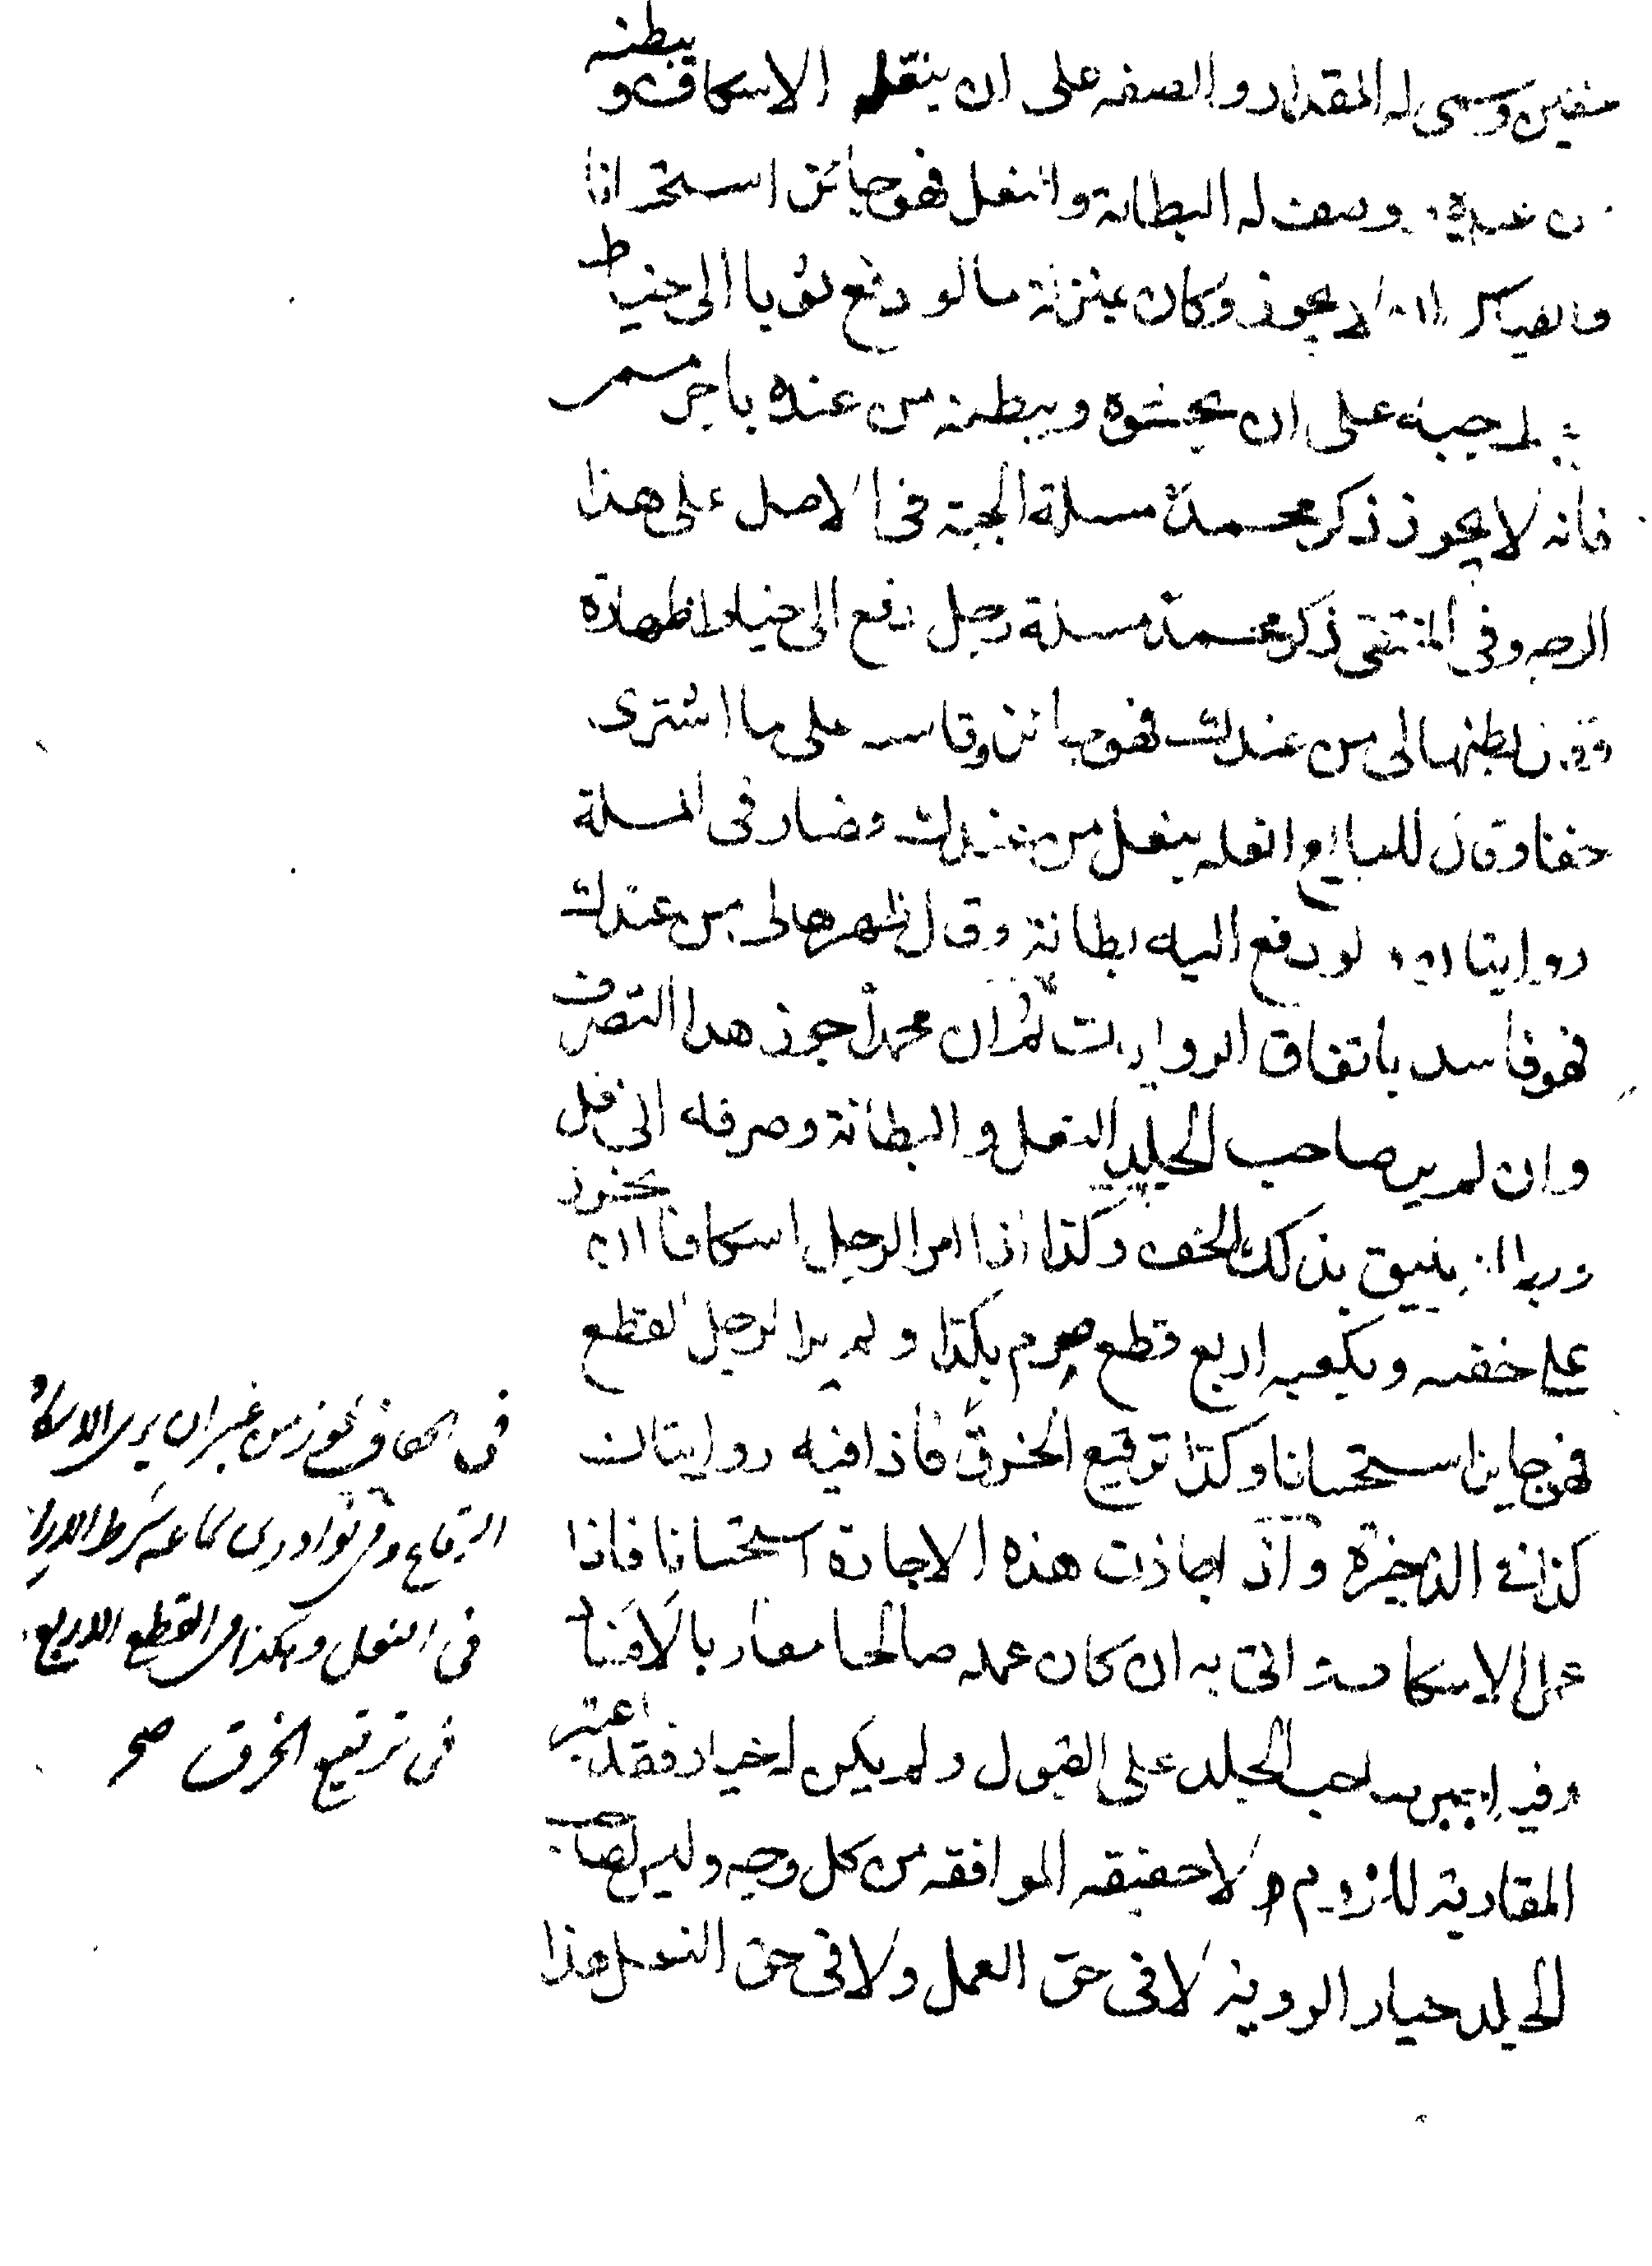 خفين وسمى له المقدار والصفه على ان ينعله الاسكاف ويبطنه
من عنده ووصف له البطانة والنعل فهو جائز استحسانا
والقياس ان لا يجوز وكان بمنزلة ما لو دفع ثوبا الى خياط
جبة على ان يحشوه ويبطنه من عنده باجر مسمى
فانه لا يجوز ذكر محمد مسئلة الجبة فى الاصل على هذا
الوجه وفى المنتقى ذكر محمد مسئلة رجل دفع الى خياط ظهارة
وقال بطنها لى من عندك فهو جائز وقاسه على ما اشترى
خفا وقال للبايع انعله بنعل من عندك فصار فى المسئلة
روايتان لو دفع اليه بطانة وقال ظهرها لى من عندك
فهو فاسد باتفاق الروايات ثم ان محمدا جوز هذا التصرف
وان لم ير صاحب الجلد النعل والبطانة وصرفه الى نعل
يليق بذلك الخف وكذا اذا امر الرجل اسكافا ان يخرز
على خفيه وبكعبه اربع قطع صرم بكذا ولم ير الرجل القطع
فهو جايز استحسانا وكذا ترقيع الخرق فاذا فيه روايتان
كذا فى الذخيرة واذ اجازت هذه الاجارة استحسانا فاذا
عمل الاسكاف واتى به ان كان عمله صالحا مقاربا لا فساد
فيه يجبر صاحب الجلد على القبول ولم يكن له خيار فقد اعتبر
المقاربة للزوم لا حقيقه الموافقه من كل وجه وليس لصاحب
الجلد خيار الروية لا فى حق العمل ولا فى حق النعل هذا
فى الخفاف يجوز من غير ان يرى الاسكاف
الرقاع وفى نوادر ابن سماعه شرط الاراة
فى النعل وهكذا فى القطع الاربع
فى ترقيع الخرق صح